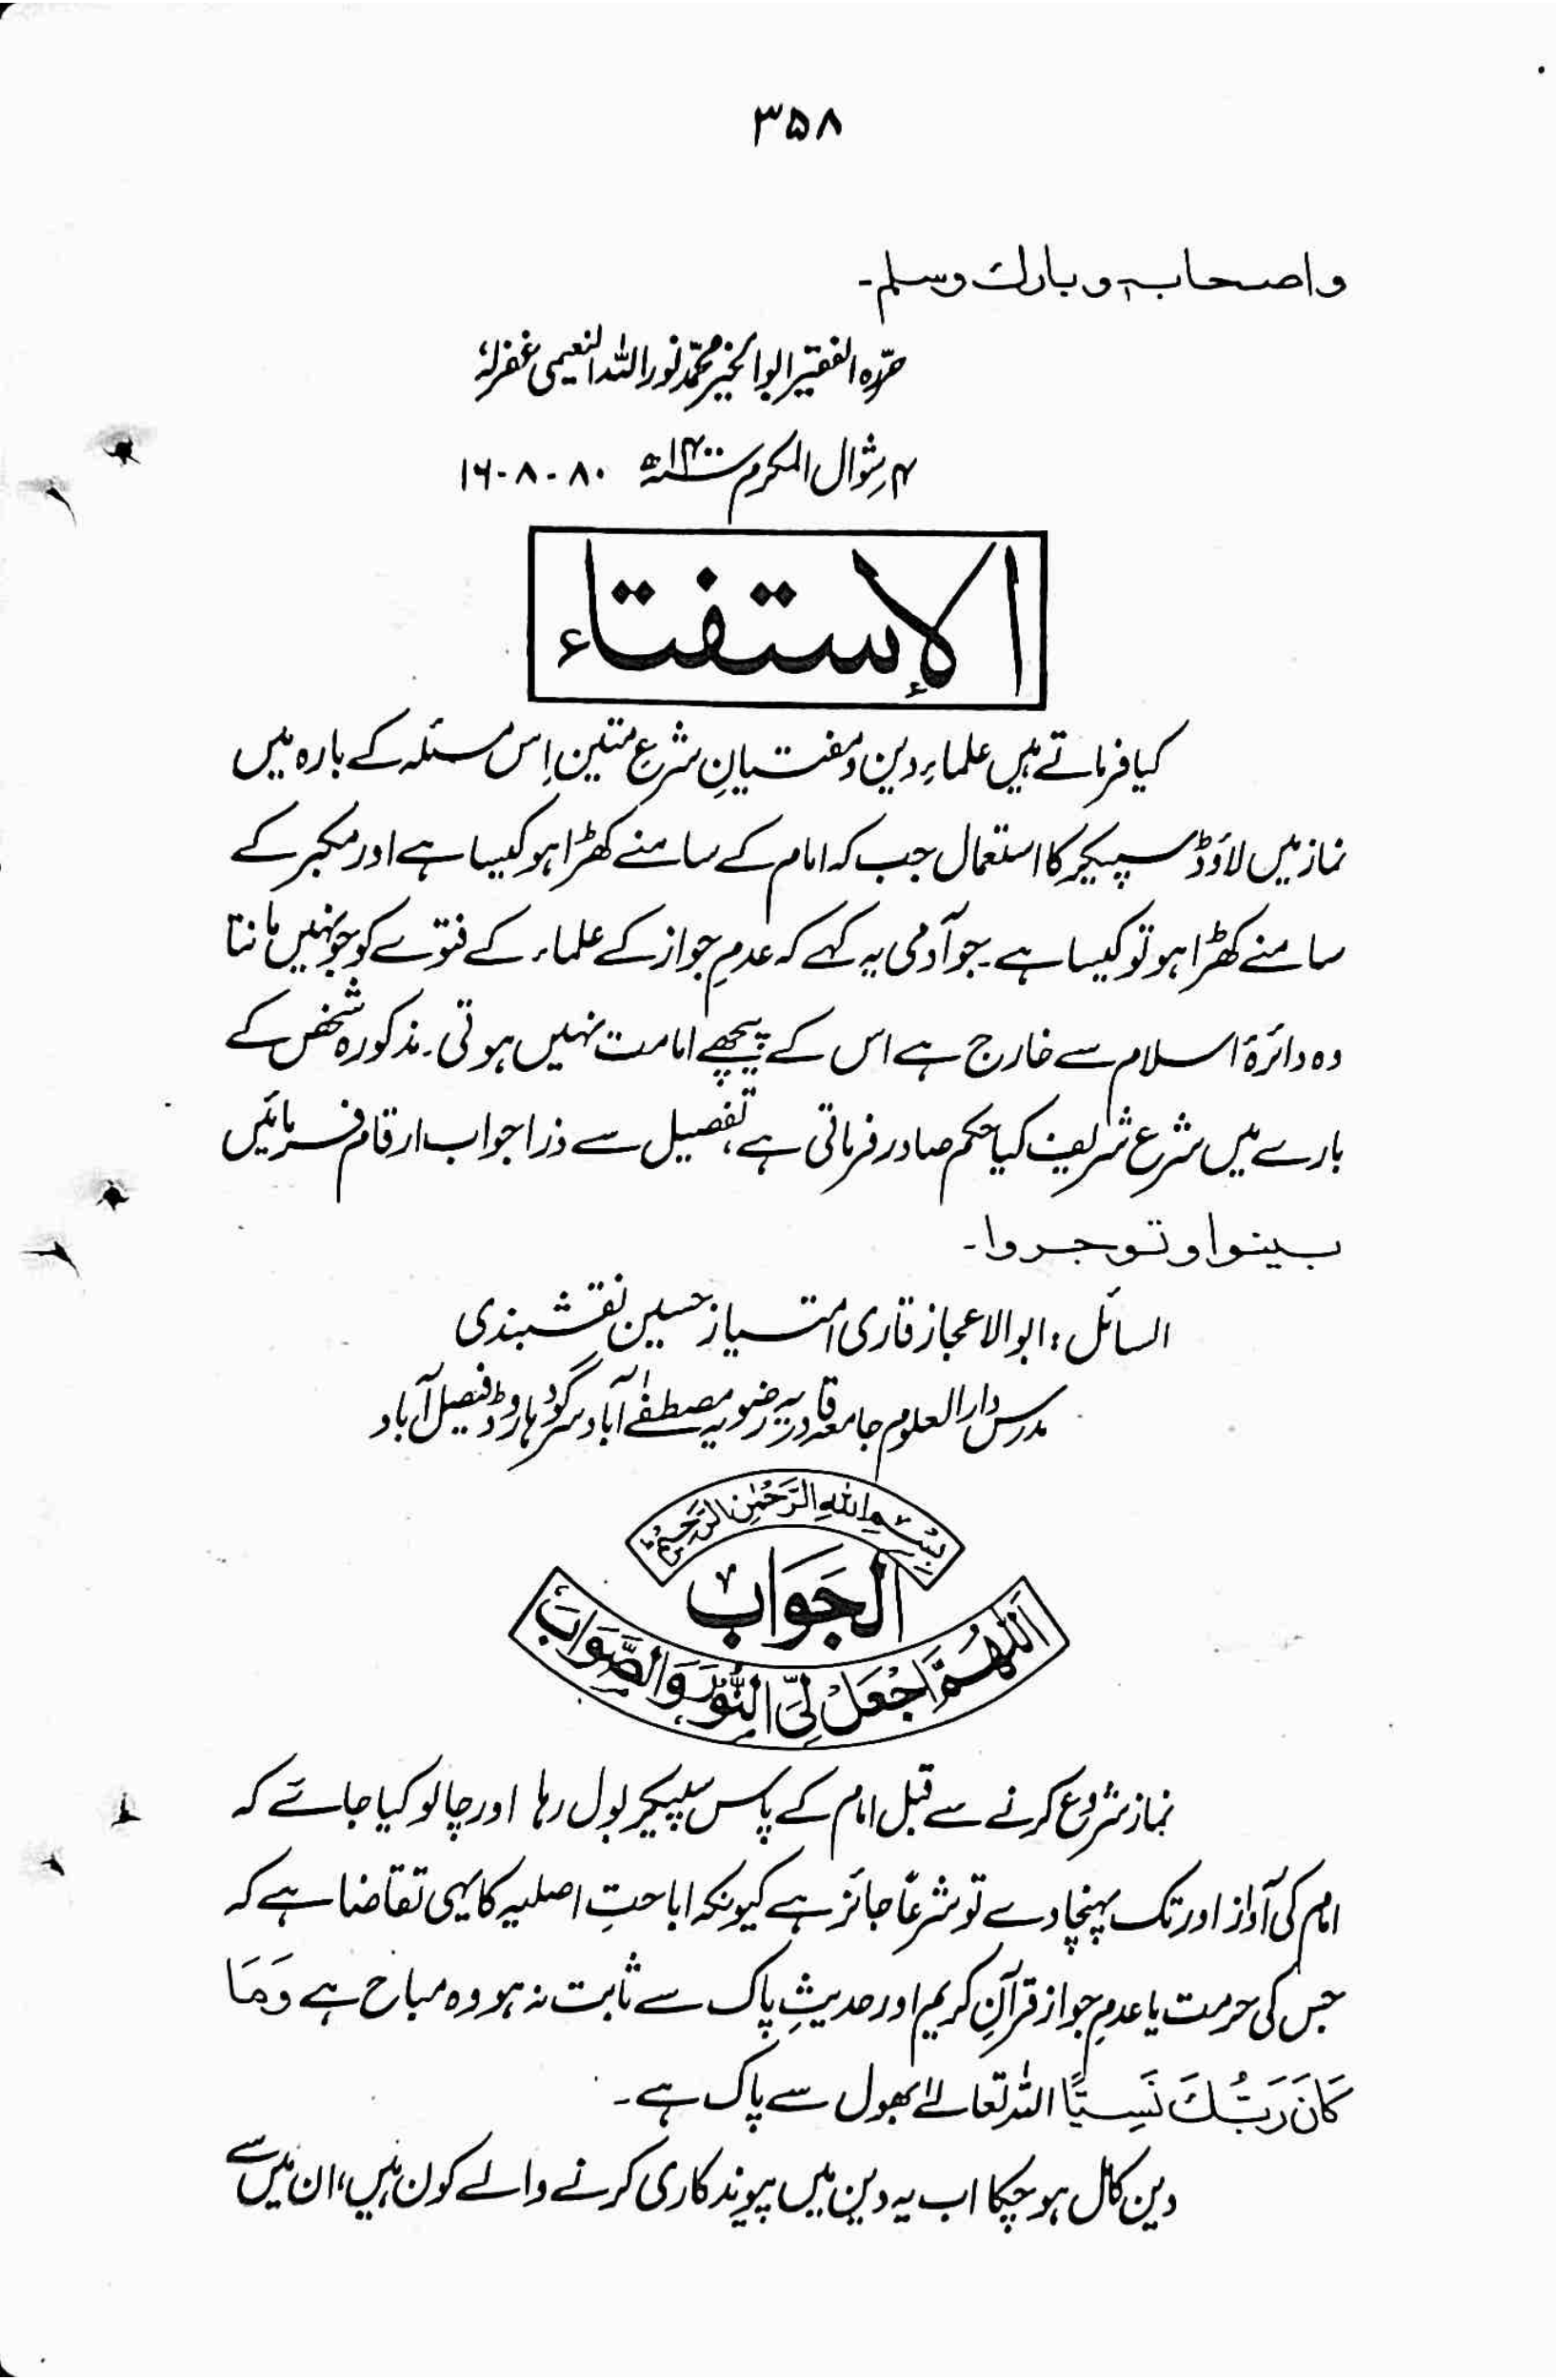 ۳۵۸
واصحابہ وبارك وسلم۔
حرّرہ الفقیر ابوالخیر محمّد نور اللہ النعیمی غفرلہٗ
۴ر شوال المکرم سنہ ۱۴۰۰ھ ۸۰-۸-۱۶
الإستفتاء
کیا فرماتے ہیں علماءِ دین و مفتیانِ شرعِ متین اِس مسئلہ کے بارہ میں
نماز میں لاؤڈ سپیکر کا استعمال جب کہ امام کے سامنے کھڑا ہو کیسا ہے اور مکبر کے
سامنے کھڑا ہو تو کیسا ہے۔ جو آدمی یہ کہے کہ عدمِ جواز کے علماء کے فتوے کو جو نہیں مانتا
وہ دائرۂ اسلام سے خارج ہے اس کے پیچھے امامت نہیں ہوتی۔ مذکورہ شخص کے
بارے میں شرع شریف کیا حکم صادر فرماتی ہے، تفصیل سے ذرا جواب ارقام فرمائیں
بینوا وتوجروا۔
السائل: ابوالاعجاز قاری امتیاز حسین نقشبندی
مدرس دارالعلوم جامعہ قادریہ رضویہ مصطفےٰ آباد سرگودہا روڈ فیصل آباد
بِسْمِ اللهِ الرَّحْمٰنِ الرَّحِيْمِ
اَلجَوَابُ
اَللّٰهُمَّ اجْعَلْ لِيَ النُّوْرَ وَالصَّوَابَ
نماز شروع کرنے سے قبل امام کے پاس سپیکر بول رہا اور چالو کیا جائے کہ
امام کی آواز اور تک پہنچا دے تو شرعًا جائز ہے کیونکہ اباحتِ اصلیہ کا یہی تقاضا ہے کہ
جس کی حرمت یا عدمِ جواز قرآنِ کریم اور حدیثِ پاک سے ثابت نہ ہو وہ مباح ہے وَمَا
كَانَ رَبُّكَ نَسِيًّا اللہ تعالےٰ بھول سے پاک ہے۔
دین کامل ہو چکا اب یہ دین میں پیوند کاری کرنے والے کون ہیں، ان میں سے